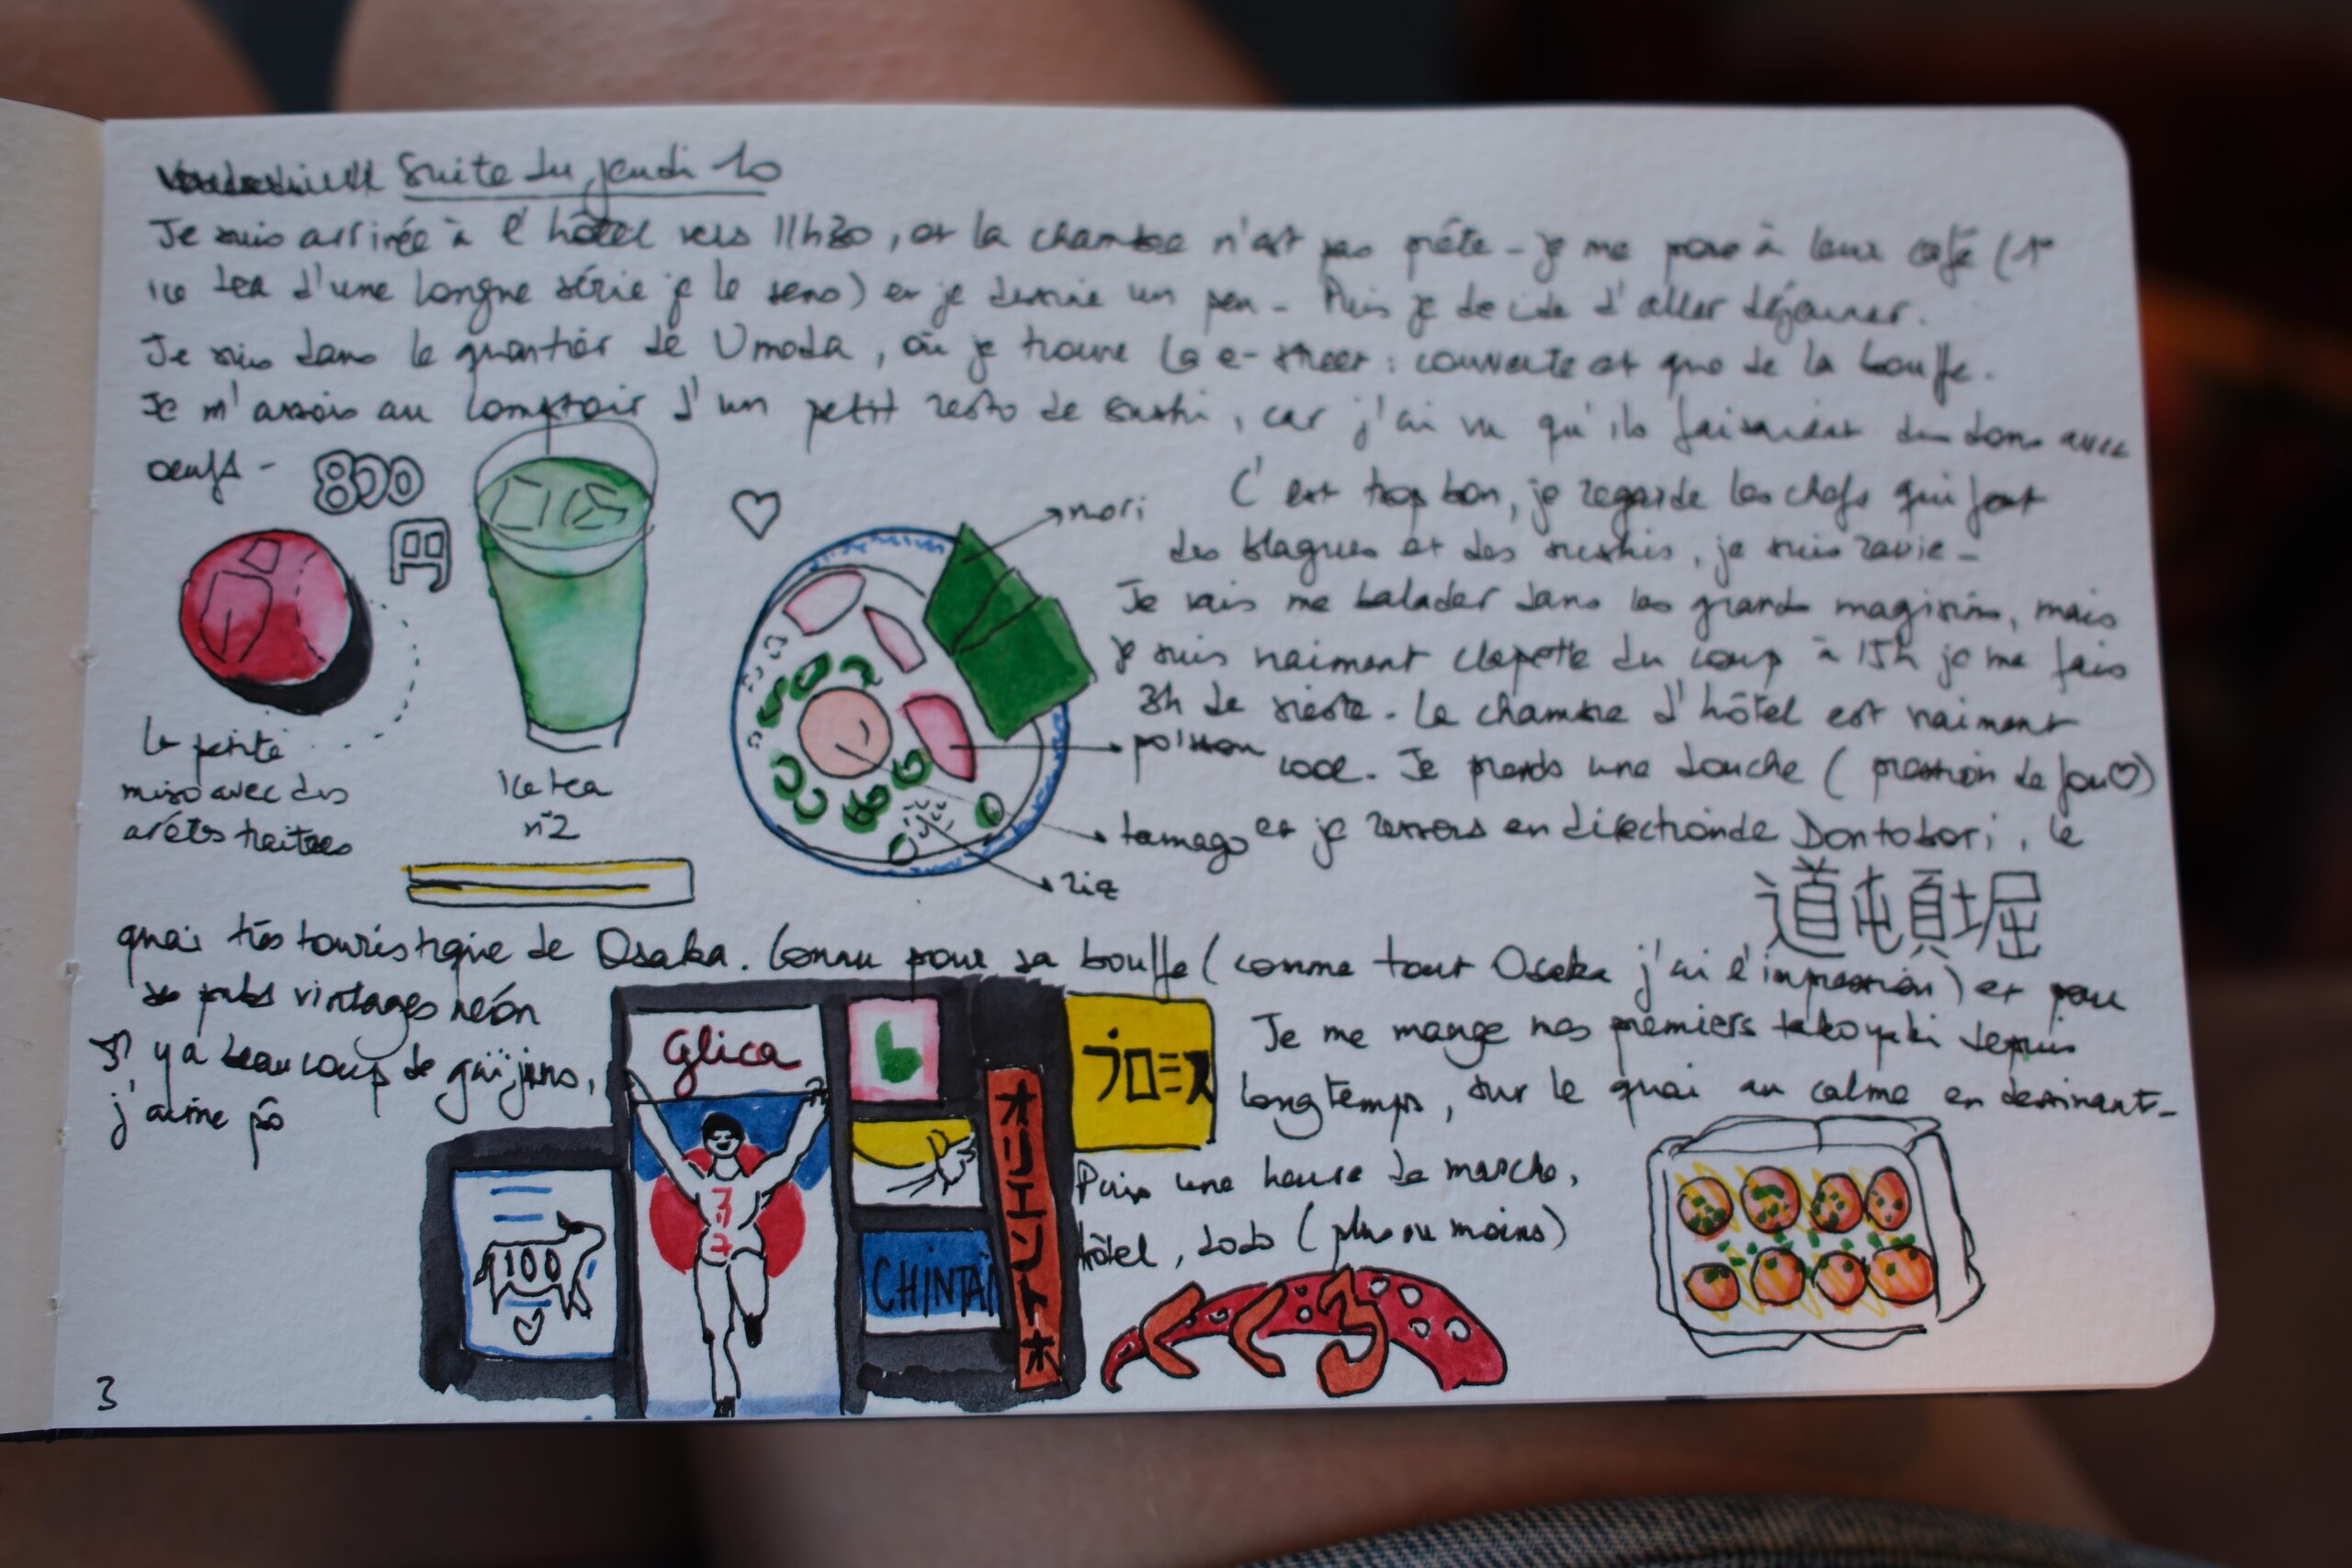 Suite du jeudi 10
Je suis arrivée à l'hôtel vers 11h30, et la chambre n'est pas prête - je me pose à leur café (1er
ice tea d'une longue série je le sens) et je dessine un peu - Puis je decide d'aller déjeuner.
Je suis dans le quartier de Umeda, où je trouve la e-street : couverte et que de la bouffe.
Je m'assois au comptoir d'un petit resto de sushi, car j'ai vu qu'ils faisaient des dons avec
oeufs -
800
円
C'est trop bon, je regarde les chefs qui font
des blagues et des sushis, je suis ravie -
Je vais me balader dans les grands magasins, mais
je suis vraiment claquette du coup à 15h je me fais
3h de sieste. La chambre d'hôtel est vraiment
cool. Je prends une douche (pression de fou♡)
et je ressors en direction de Dontobori, le
道屯頓堀
nori
poisson
tamago
riz
la petite
miso avec des
arêtes traitres
ice tea
n°2
quai très touristique de Osaka. Connu pour sa bouffe (comme tout Osaka j'ai l'impression) et pour
se pubs vintages néon
Il y a beaucoup de gaïjins,
j'aime pô
Je me mange mes premiers takoyaki depuis
longtemps, sur le quai au calme en dessinant -
Puis une heure de marche,
hôtel, dodo (plus ou moins)
Glica
プロミス
オリエント
CHINTAI
100
3